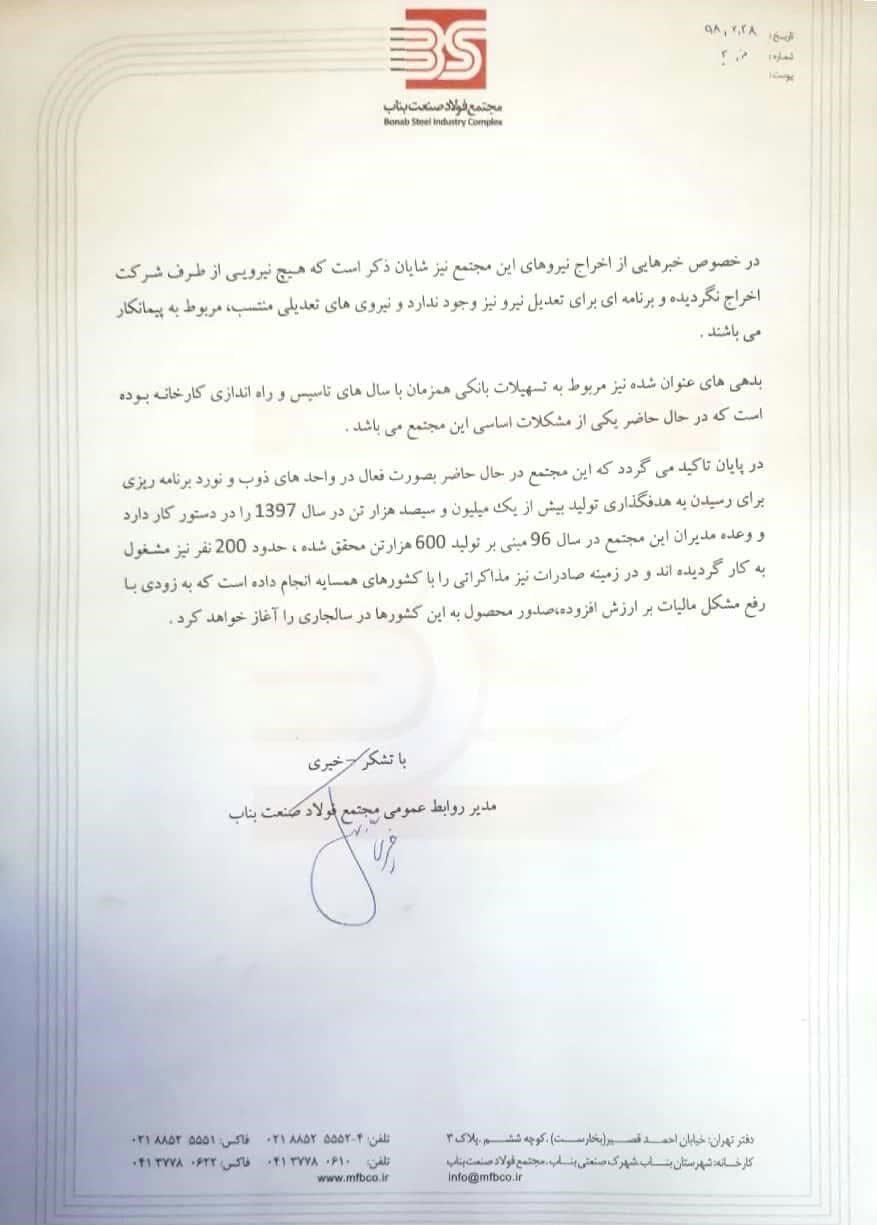 تاریخ: ۹۸٫۲٫۲۸
شماره:
پیوست:
BS
مجتمع فولاد صنعت بناب
Bonab Steel Industry Complex
در خصوص خبرهایی از اخراج نیروهای این مجتمع نیز شایان ذکر است که هیچ نیرویی از طرف شرکت
اخراج نگردیده و برنامه ای برای تعدیل نیرو نیز وجود ندارد و نیروی های تعدیلی منتسب، مربوط به پیمانکار
می باشند .
بدهی های عنوان شده نیز مربوط به تسهیلات بانکی همزمان با سال های تاسیس و راه اندازی کارخانه بوده
است که در حال حاضر یکی از مشکلات اساسی این مجتمع می باشد .
در پایان تاکید می گردد که این مجتمع در حال حاضر بصورت فعال در واحد های ذوب و نورد برنامه ریزی
برای رسیدن به هدفگذاری تولید بیش از یک میلیون و سیصد هزار تن در سال 1397 را در دستور کار دارد
و وعده مدیران این مجتمع در سال 96 مبنی بر تولید 600 هزارتن محقق شده ، حدود 200 نفر نیز مشغول
به کار گردیده اند و در زمینه صادرات نیز مذاکراتی را با کشورهای همسایه انجام داده است که به زودی با
رفع مشکل مالیات بر ارزش افزوده،صدور محصول به این کشورها در سالجاری را آغاز خواهد کرد .
با تشکر – خیری
مدیر روابط عمومی مجتمع فولاد صنعت بناب
دفتر تهران: خیابان احمد قصیر(بخارست)،کوچه ششم،پلاک ۳ تلفن: ۴-۵۵۵۲ ۸۸۵۲ ۰۲۱ فاکس: ۵۵۵۱ ۸۸۵۲ ۰۲۱
کارخانه:شهرستان بناب،شهرک صنعتی بناب،مجتمع فولاد صنعت بناب تلفن: ۰۶۱۰ ۳۷۷۸ ۰۴۱ فاکس: ۰۶۲۲ ۳۷۷۸ ۰۴۱
info@mfbco.ir www.mfbco.ir